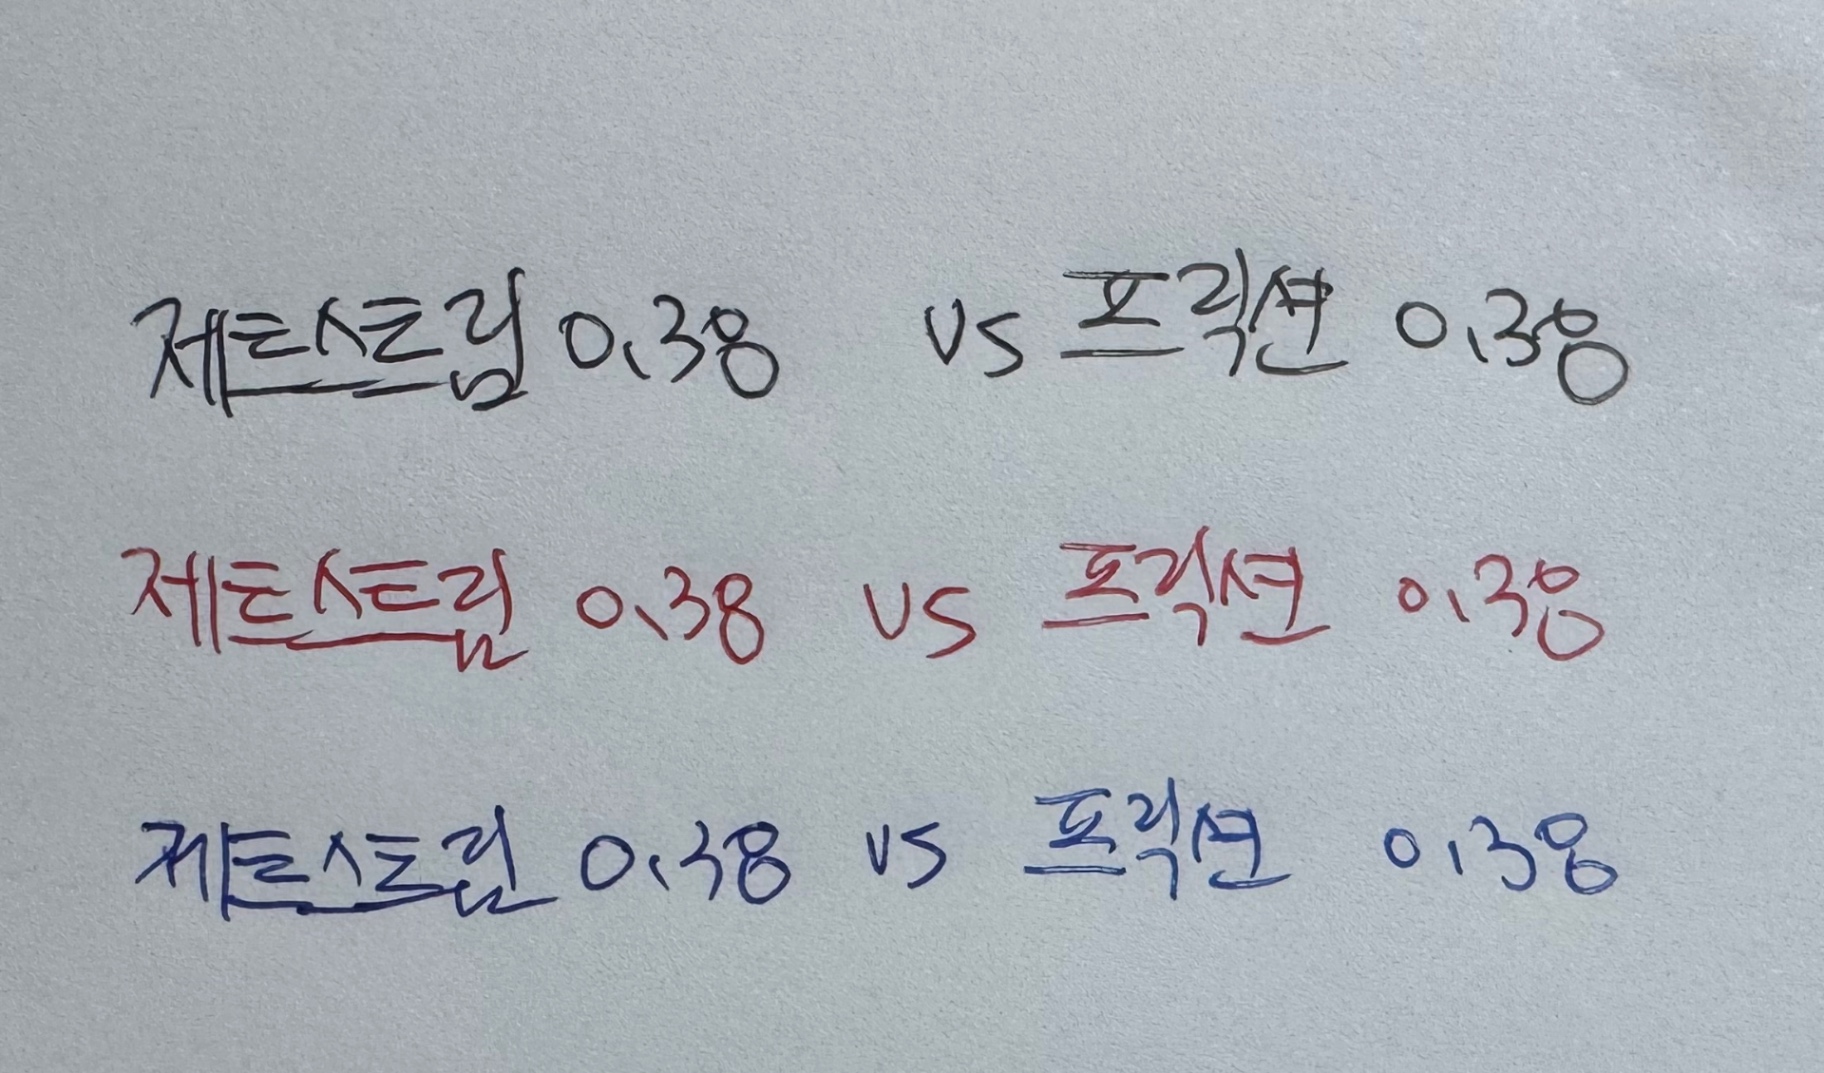 제트스트림 0.38 vs 프릭션 0.38
제트스트림 0.38 vs 프릭션 0.38
제트스트림 0.38 vs 프릭션 0.38